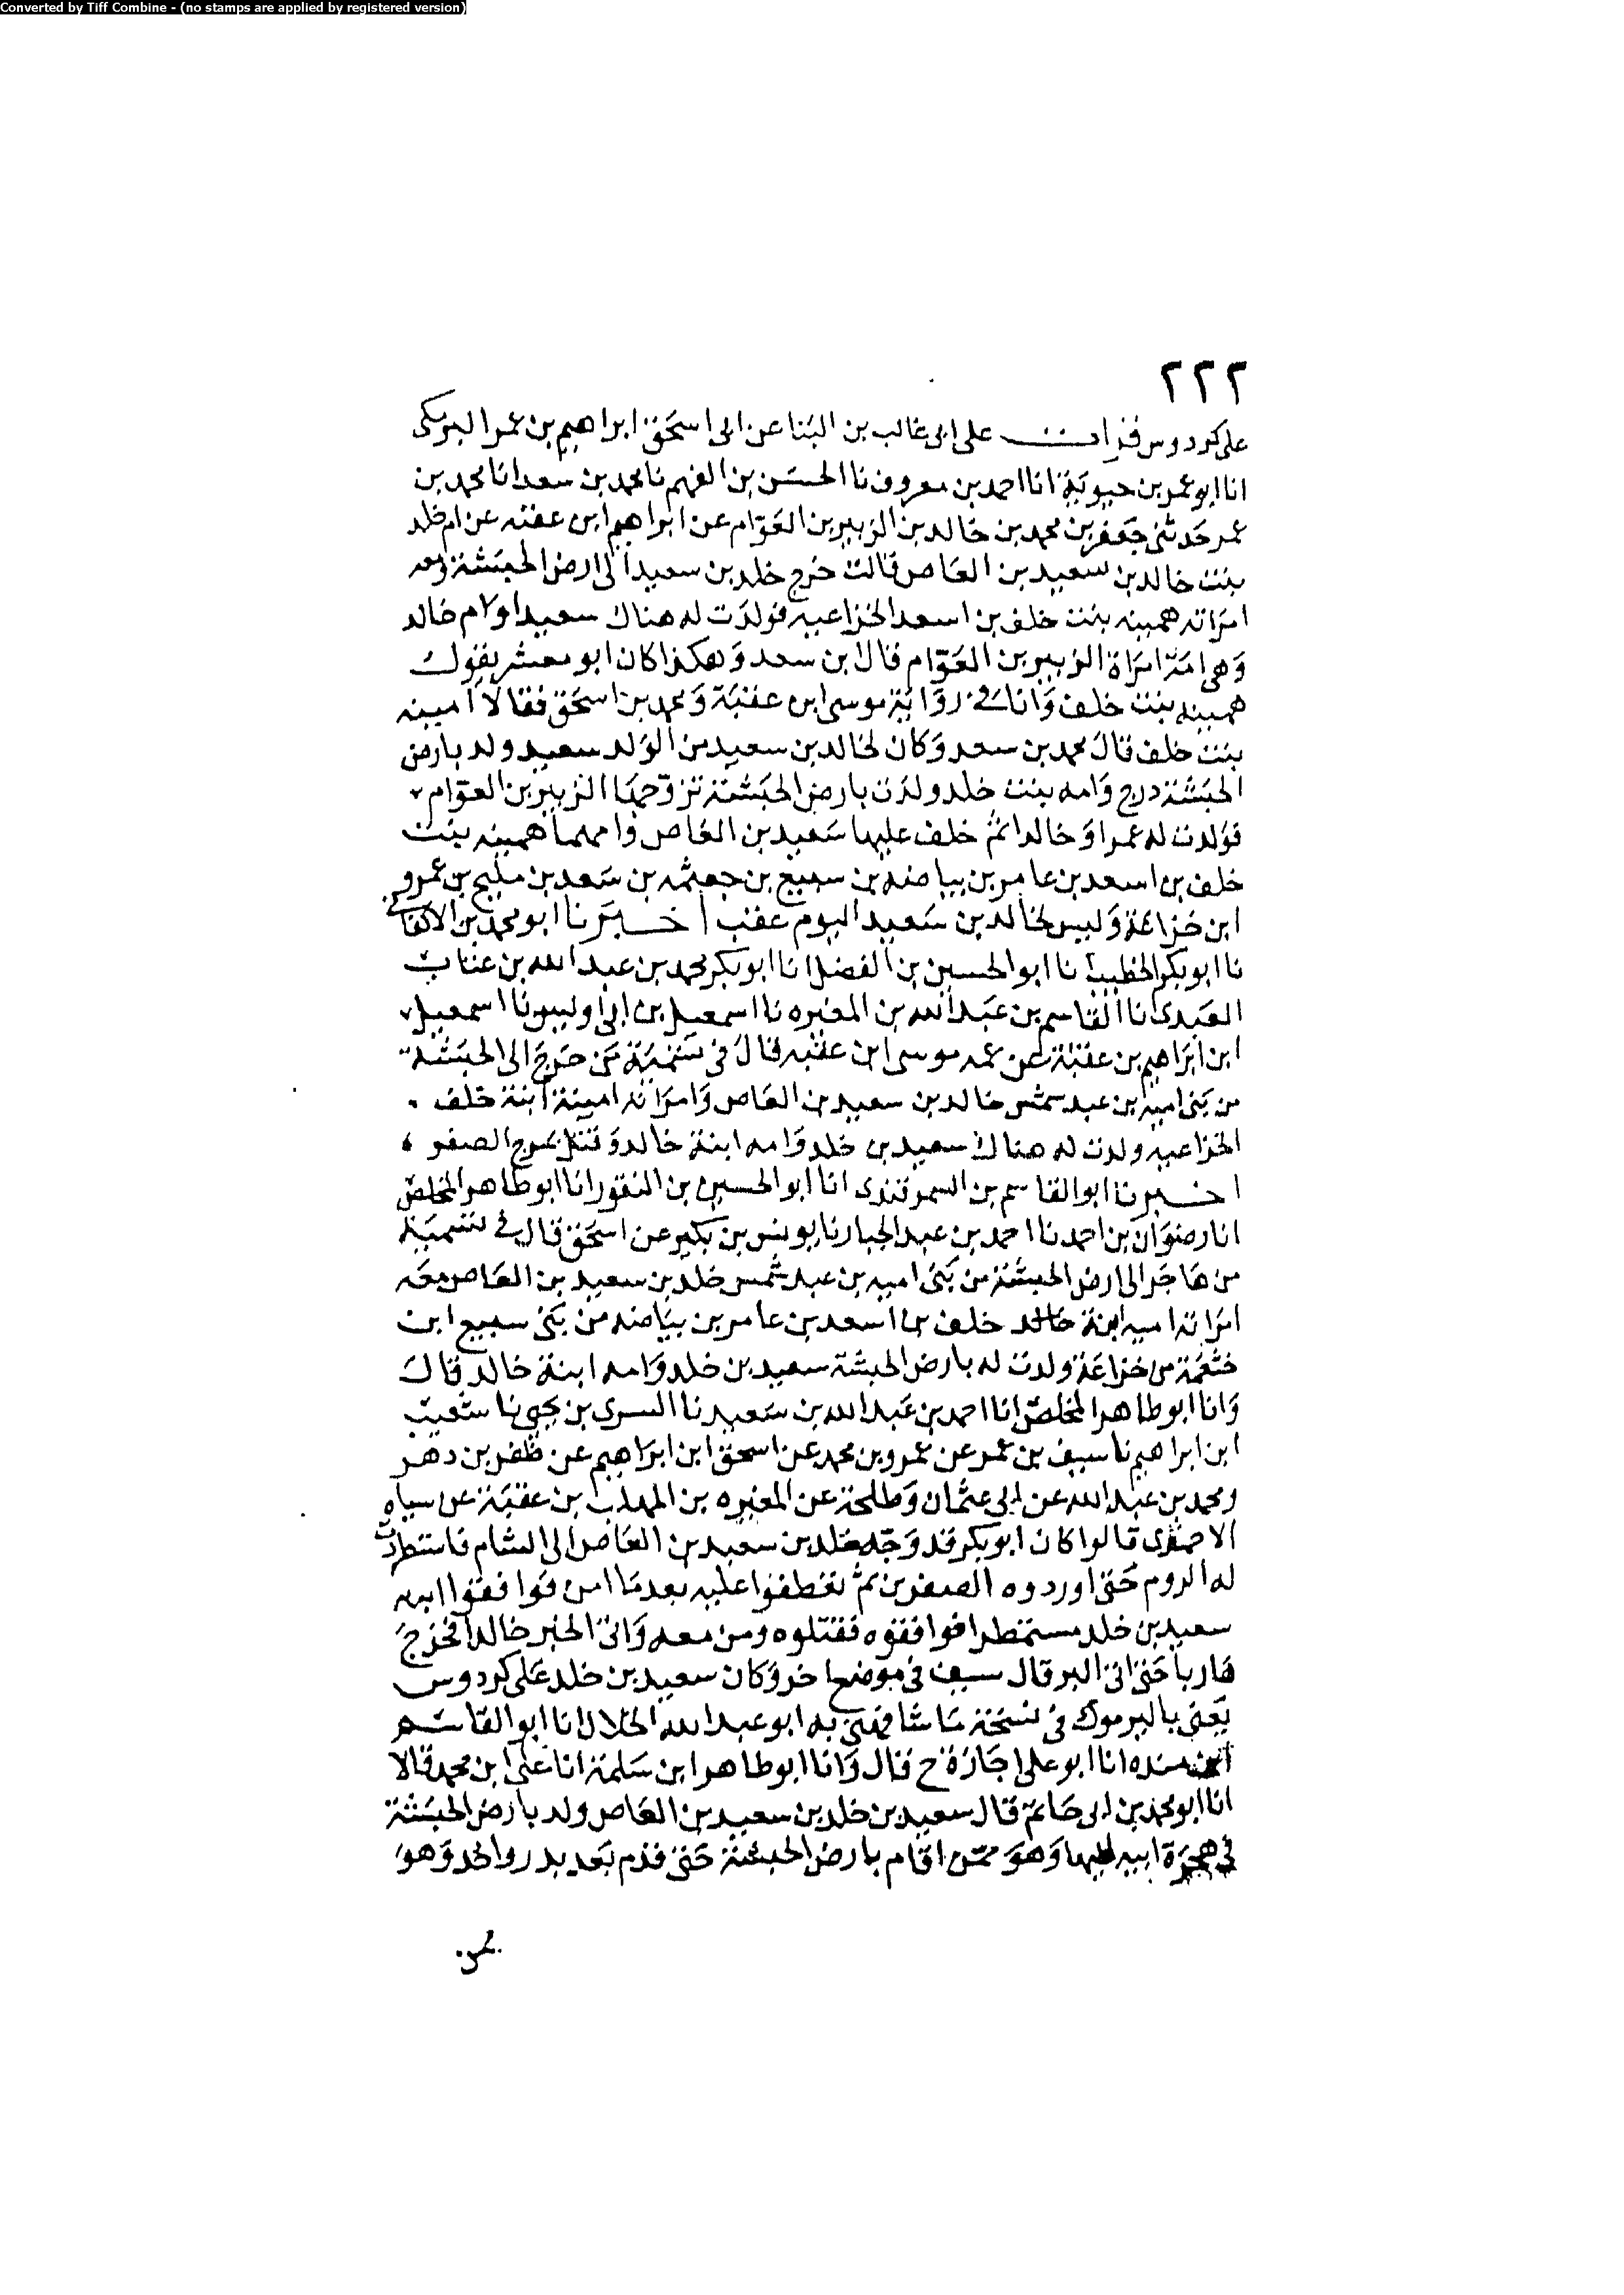 Converted by Tiff Combine - (no stamps are applied by registered version)
٢٢٢
على كردوس قرات على ابى غالب بن البنا عن ابى اسحق ابراهيم بن عمر البرمكى
انا ابو عمر بن حيوية انا احمد بن معروف نا الحسين بن الفهم نا محمد بن سعد انا محمد بن
عمر حدثنى جعفر بن محمد بن خالد بن الزبير بن العوام عن ابراهيم ابن عقبه عن ام خلد
بنت خالد بن سعيد بن العاص قالت خرج خلد بن سعيد الى ارض الحبشة ومعه
امراته همينه بنت خلف بن اسعد الخزاعيه فولدت له هناك سعيدا وام خالد
وهى امة امراة الزبير بن العوام قال ابن سعد وهكذا كان ابو معشر يقول
همينه بنت خلف واما فى رواية موسى ابن عقبة ومحمد بن اسحق فقالا امينه
بنت خلف قال محمد بن سعد وكان لخالد بن سعيد من الولد سعيد ولد بارض
الحبشة درج وامه بنت خلد ولدت بارض الحبشة تزوجها الزبير بن العوام
فولدت له عمرا وخالدا ثم خلف عليها سعيد بن العاص وامهما همينه بنت
خلف بن اسعد بن عامر بن بياضه بن سبيع بن جعثمه بن سعد بن مليح بن عمرو
ابن خزاعة وليس لخالد بن سعيد اليوم عقب اخبرنا ابو محمد بن الاكفانى
نا ابو بكر الخطيب انا ابو الحسين بن الفضل انا ابو بكر محمد بن عبد الله بن عتاب
العبدى انا القاسم بن عبد الله بن المغيره نا اسمعيل بن ابى اويس نا اسمعيل
ابن ابراهيم بن عقبة عن عمه موسى ابن عقبه قال فى تسمية من خرج الى الحبشة
من بنى اميه بن عبد شمس خالد بن سعيد بن العاص وامراته امينة ابنة خلف
الخزاعيه ولدت له هناك سعيد بن خلد وامه ابنة خالد وقتل بمرج الصفر
اخبرنا ابو القاسم بن السمرقندى انا ابو الحسين بن النقور انا ابو طاهر المخلص
انا رضوان بن احمد نا احمد بن عبد الجبار نا يونس بن بكير عن اسحق قال فى تسمية
من هاجر الى ارض الحبشة من بنى اميه بن عبد شمس خلد بن سعيد بن العاص معه
امراته اميه ابنة خالد خلف بن اسعد بن عامر بن بياضه من بنى سبيع ابن
خثعمة من خزاعة ولدت له بارض الحبشة سعيد بن خلد وامه ابنة خالد قال
وانا ابو طاهر المخلص انا احمد بن عبد الله بن سعيد نا السرى بن يحيى نا شعيب
ابن ابراهيم نا سيف بن عمر عن عمرو بن محمد عن اسحق ابن ابراهيم عن ظفر بن دهر
ومحمد بن عبد الله عن ابى عثمان وطلحة عن المغيره بن المهلب بن عقبة عن سياه
الاحمرى قالوا كان ابو بكر قد وجه خلد بن سعيد بن العاص الى الشام فاستطردت
له الروم حتى اوردوه الصفرين ثم تعطفوا عليه بعدما امن فوافقوا ابنه
سعيد بن خلد مستمطرا فوافقوه فقتلوه ومن معه واتى الخبر خالدا فخرج
هاربا حتى اتى البر قال سيف فى موضع اخر وكان سعيد بن خلد على كردوس
يعنى باليرموك فى نسخة ما شافهنى به ابو عبد الله الخلال انا ابو القاسم
ابن منده انا ابو على اجازة ح قال وانا ابو طاهر ابن سلمة انا على ابن محمد قالا
انا ابو محمد بن ابى حاتم قال سعيد بن خلد بن سعيد بن العاص ولد بارض الحبشة
فى هجرة ابيه اليها وهو ممن اقام بارض الحبشة حتى قدم بعد بدر واحد وهو